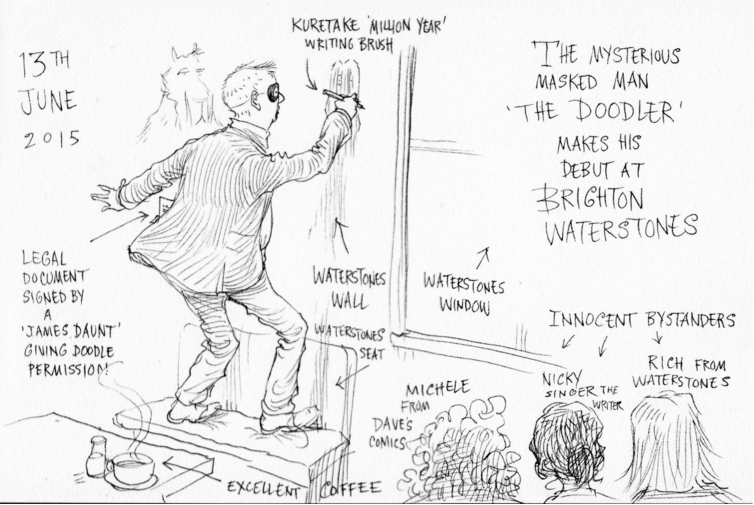 13TH
JUNE
2015
KURETAKE 'MILLION YEAR'
WRITING BRUSH
THE MYSTERIOUS
MASKED MAN
'THE DOODLER'
MAKES HIS
DEBUT AT
BRIGHTON
WATERSTONES
LEGAL
DOCUMENT
SIGNED BY
A
'JAMES DAUNT'
GIVING DOODLE
PERMISSION!
WATERSTONES
WALL
WATERSTONES
WINDOW
WATERSTONES
SEAT
INNOCENT BYSTANDERS
MICHELE
FROM
DAVE'S
COMICS
NICKY
SINGER THE
WRITER
RICH FROM
WATERSTONES
EXCELLENT COFFEE